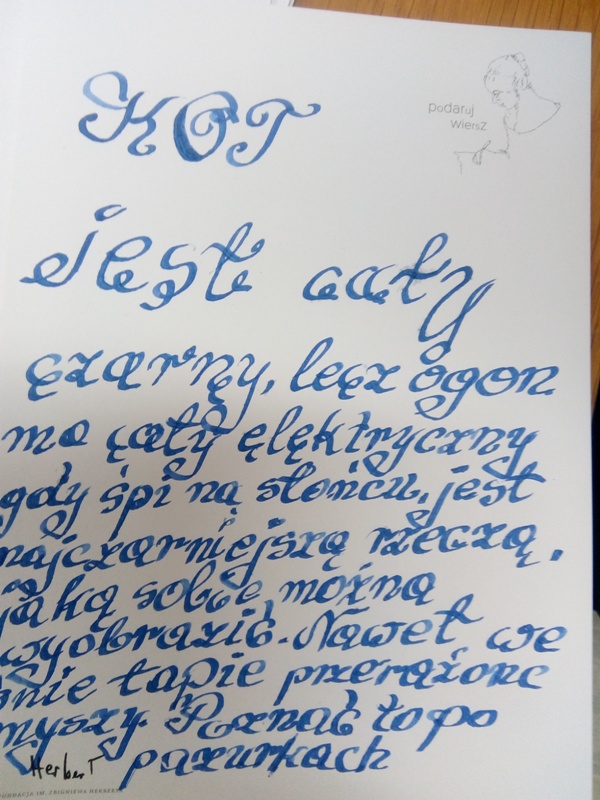 KOT
podaruj
wiersz
jest cały
czarny, lecz ogon
ma cały elektryczny
gdy śpi na słońcu, jest
najczarniejszą rzeczą,
jaką sobie można
wyobrazić. Nawet we
śnie łapie przerażone
myszy. Poznać to po
pazurkach
HerberT
FUNDACJA IM. ZBIGNIEWA HERBERTA